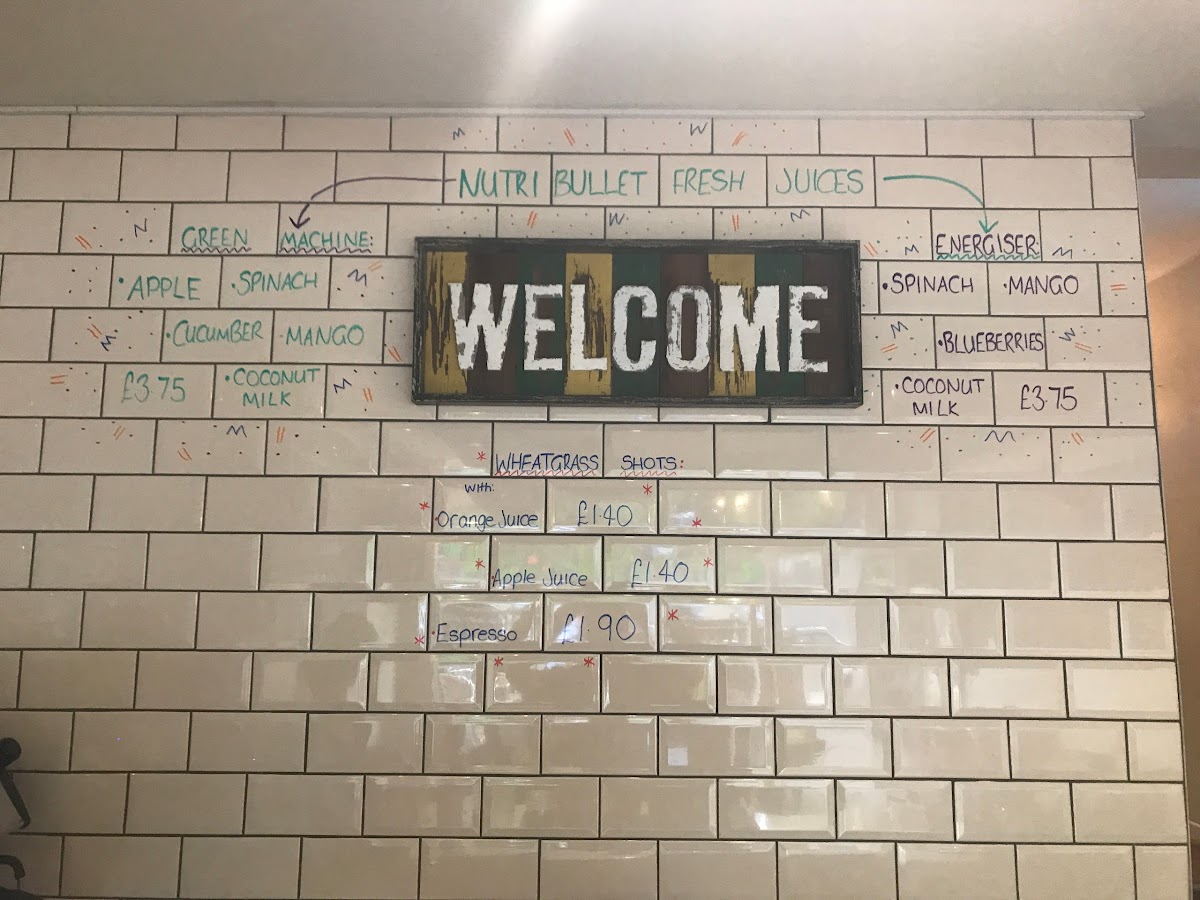 NUTRI BULLET FRESH JUICES
GREEN MACHINE:
•APPLE •SPINACH
•CUCUMBER •MANGO
£3.75 •COCONUT MILK
WELCOME
ENERGISER:
•SPINACH •MANGO
•BLUEBERRIES
•COCONUT MILK £3.75
*WHEATGRASS SHOTS:
with:
*•Orange Juice £1.40*
*•Apple Juice £1.40*
*•Espresso £1.90*